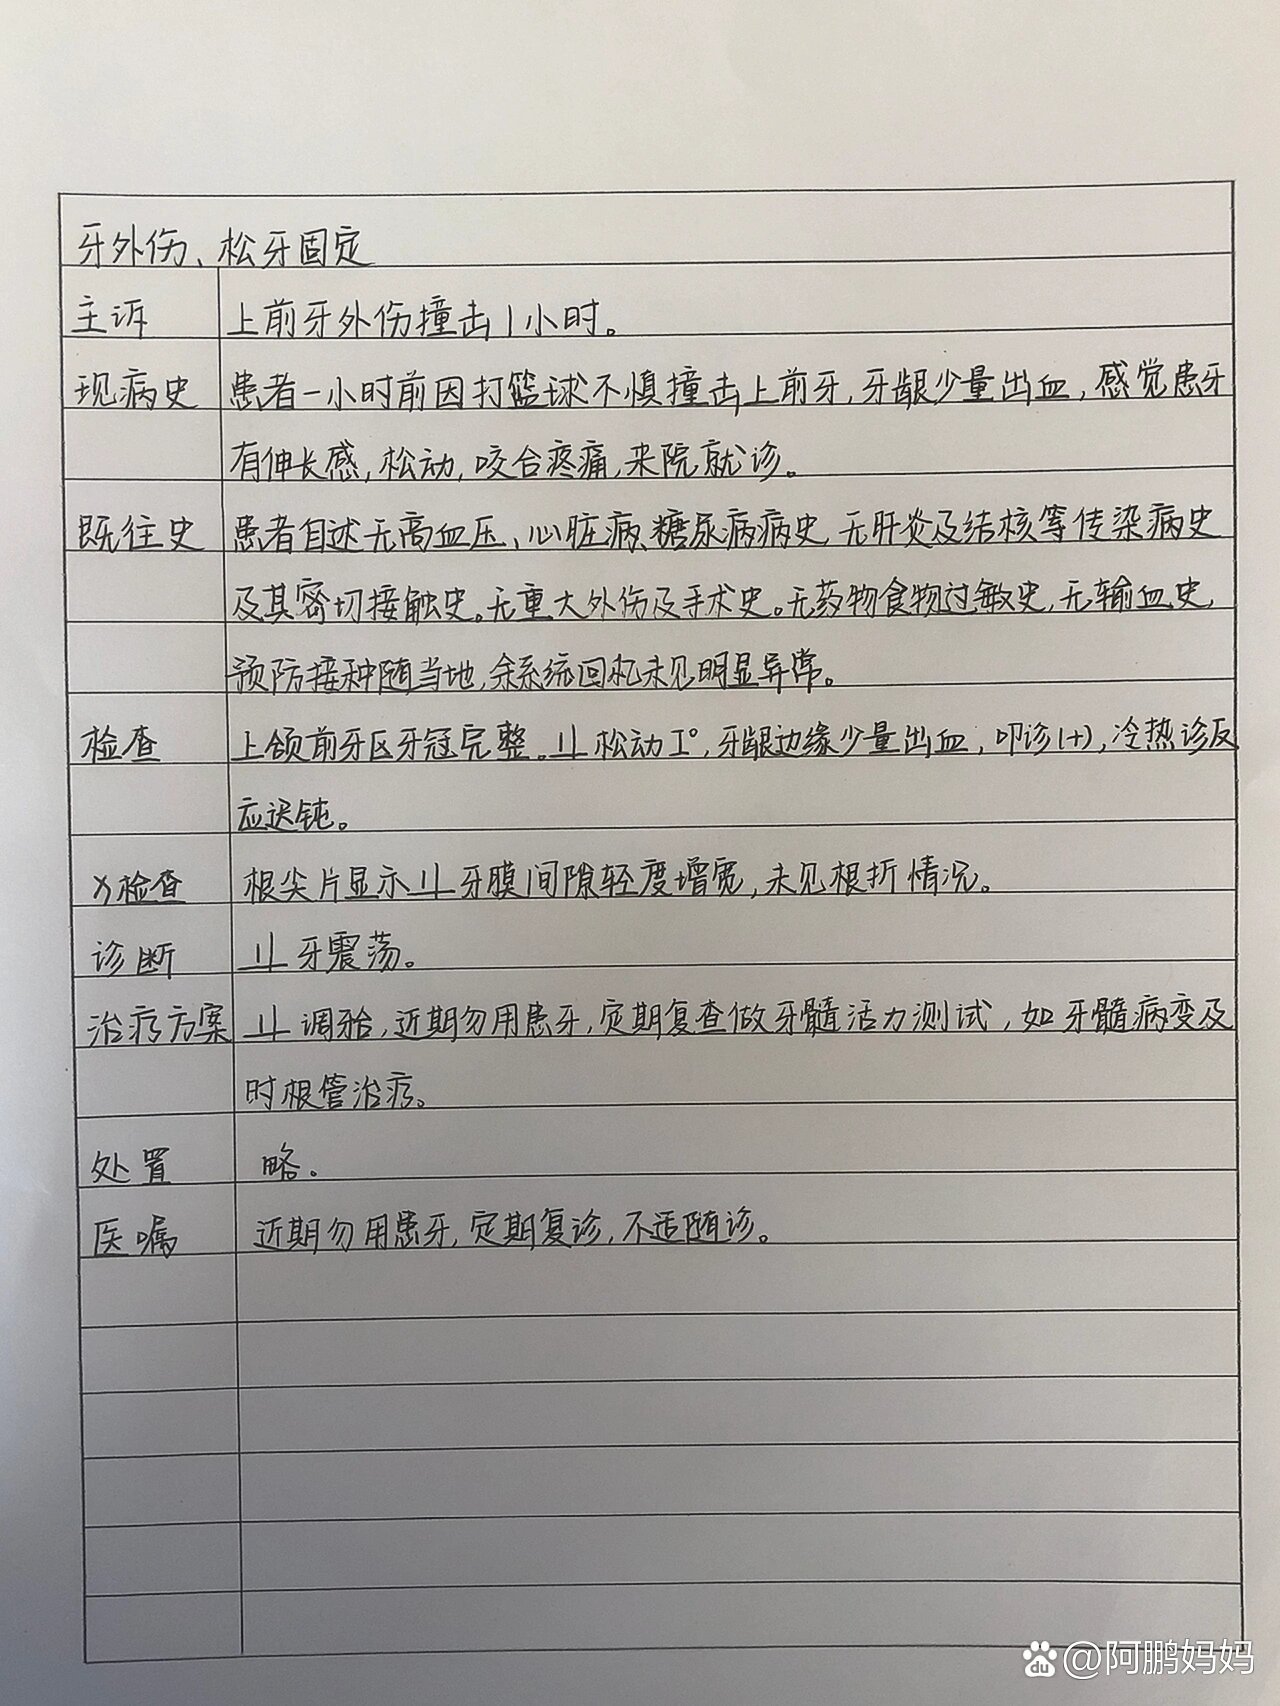 牙外伤、松牙固定
主诉 上前牙外伤撞击1小时。
现病史 患者一小时前因打篮球不慎撞击上前牙,牙龈少量出血,感觉患牙
有伸长感,松动,咬合疼痛,来院就诊。
既往史 患者自述无高血压、心脏病、糖尿病病史,无肝炎及结核等传染病史
及其密切接触史。无重大外伤及手术史。无药物食物过敏史,无输血史,
预防接种随当地,余系统回顾未见明显异常。
检查 上颌前牙区牙冠完整。1⊥松动I°,牙龈边缘少量出血,叩诊(+),冷热诊反
应迟钝。
X检查 根尖片显示1⊥牙膜间隙轻度增宽,未见根折情况。
诊断 1⊥牙震荡。
治疗方案 1⊥调𬌗,近期勿用患牙,定期复查做牙髓活力测试,如牙髓病变及
时根管治疗。
处置 略.
医嘱 近期勿用患牙,定期复诊,不适随诊。
du @阿鹏妈妈